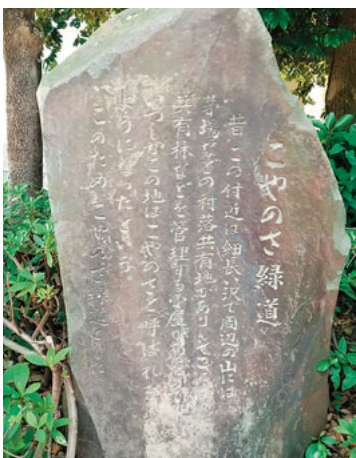 こやのさ緑道
昔この付近は細長い沢で周辺の山には
茅場などの村落共有地がありそこに
共有林などを管理する小屋が
いつしかこの地はこやのさと呼ばれ
ようになったという
このため こやのさ緑道と